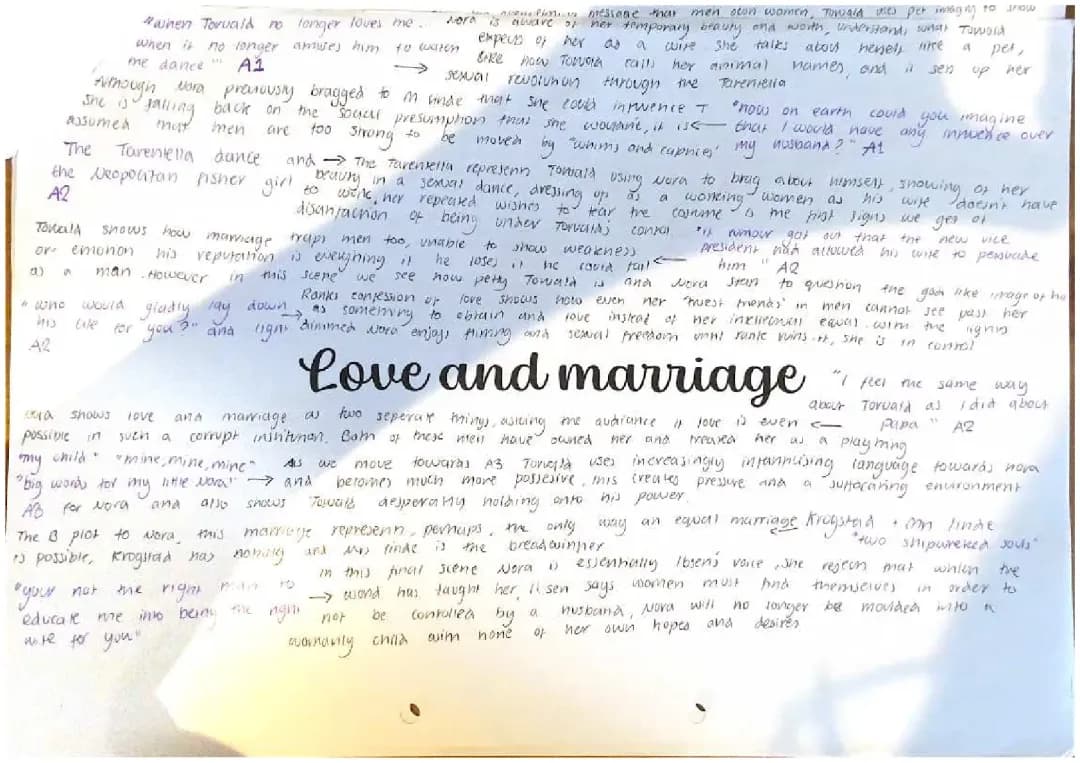 message that men own women, Torvald uses pet imagry to show
"when Torvald no longer loves me. Nora is aware of her temporary beauty and worth, understands what Torvald
when it no longer amuses him to watch expects of her as a wife she talks about herself like a pet,
me dance" A1 → like how Torvald calls her animal names, and it sets up her
sexual revolution through the Tarentella
Although Nora previously bragged to M linde that she could influence T "how on earth could you imagine
she is falling back on the social presumption that she wouldnt, it is ← that I would have any influence over
assumed that men are too strong to be moved by "whims and caprices' my husband?" A1
The Tarentella dance and → The Tarentella represents Torvald using Nora to brag about himself, showing of her
the Neopolitan fisher girl beauty in a sexual dance, dressing up as a working women as his wife doesn't have
A2 to work, her repeated wishes to tear the costume is the first signs we get of
disatisfaction of being under Torvalds control
Torvald shows how marriage traps men too, unable to show weakness "if rumour got out that the new vice
or emotion his reputation is everything if he loses it he could fail ← president had allowed his wife to persuade
as a man. However in this scene we see how petty Torvald is and Nora start to question the god like image of
him" A2
"who would gladly lay down Ranks confession of love shows how even her 'truest friends' in men cannot see past her
his life for you?" and light → as something to obtain and love instead of her intellectual equal. with the lights
A2 dimmed Nora enjoys flirting and sexual freedom until rank ruins it, she is in control
Love and marriage
"I feel the same way
about Torvald as I did about
papa" A2
Nora shows love and marriage as two seperate things, asking the audiance if love is even ←
possible in such a corrupt institution. Both of these men have owned her and treated her as a plaything
"my child" "mine, mine, mine" As we move towards A3 Torvald uses increasingly infantilising language towards nora
"big words for my little Nora!" → and becomes much more possesive, this creates pressure and a suffocating environment
A3 for Nora and also shows Torvald desperatly holding onto his power.
The B plot to Nora, this marriage represents, perhaps, the only way an equal marriage Krogstad + Mrs linde
is possible, Krogstad has nothing and Mrs linde is the breadwinner ← "two shipwreked souls"
"your not the right man to in this final scene Nora is essentially Ibsens voice, she rejects that which the
educate me into being the right → world has taught her, Ibsen says women must find themselves in order to
wife for you" not be controlled by a husband, Nora will no longer be moulded into a
womanly child with none of her own hopes and desires